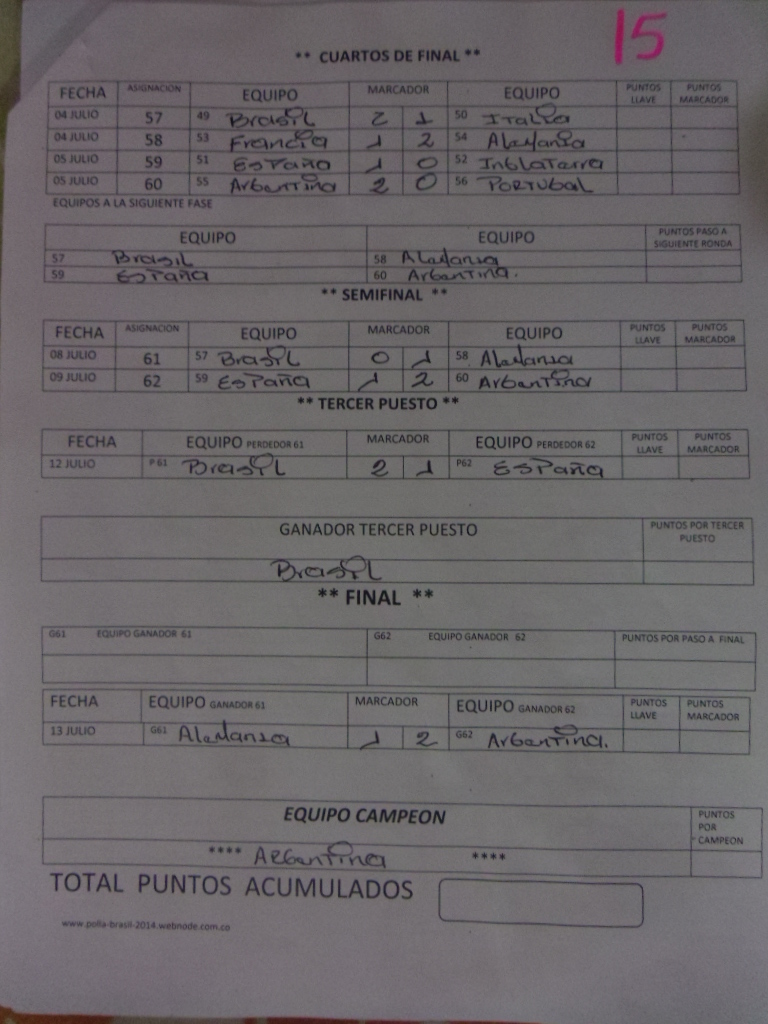 15
** CUARTOS DE FINAL **
FECHA ASIGNACION EQUIPO MARCADOR EQUIPO PUNTOS LLAVE PUNTOS MARCADOR
04 JULIO 57 49 Brasil 2 1 50 Italia
04 JULIO 58 53 Francia 1 2 54 Alemania
05 JULIO 59 51 España 1 0 52 Inglaterra
05 JULIO 60 55 Argentina 2 0 56 Portugal
EQUIPOS A LA SIGUIENTE FASE
EQUIPO EQUIPO PUNTOS PASO A SIGUIENTE RONDA
57 Brasil 58 Alemania
59 España 60 Argentina.
** SEMIFINAL **
FECHA ASIGNACION EQUIPO MARCADOR EQUIPO PUNTOS LLAVE PUNTOS MARCADOR
08 JULIO 61 57 Brasil 0 1 58 Alemania
09 JULIO 62 59 España 1 2 60 Argentina
** TERCER PUESTO **
FECHA EQUIPO PERDEDOR 61 MARCADOR EQUIPO PERDEDOR 62 PUNTOS LLAVE PUNTOS MARCADOR
12 JULIO P61 Brasil 2 1 P62 España
GANADOR TERCER PUESTO PUNTOS POR TERCER PUESTO
Brasil
** FINAL **
G61 EQUIPO GANADOR 61 G62 EQUIPO GANADOR 62 PUNTOS POR PASO A FINAL
FECHA EQUIPO GANADOR 61 MARCADOR EQUIPO GANADOR 62 PUNTOS LLAVE PUNTOS MARCADOR
13 JULIO G61 Alemania 1 2 G62 Argentina.
EQUIPO CAMPEON PUNTOS POR CAMPEON
**** Argentina ****
TOTAL PUNTOS ACUMULADOS
www.polla-brasil-2014.webnode.com.co